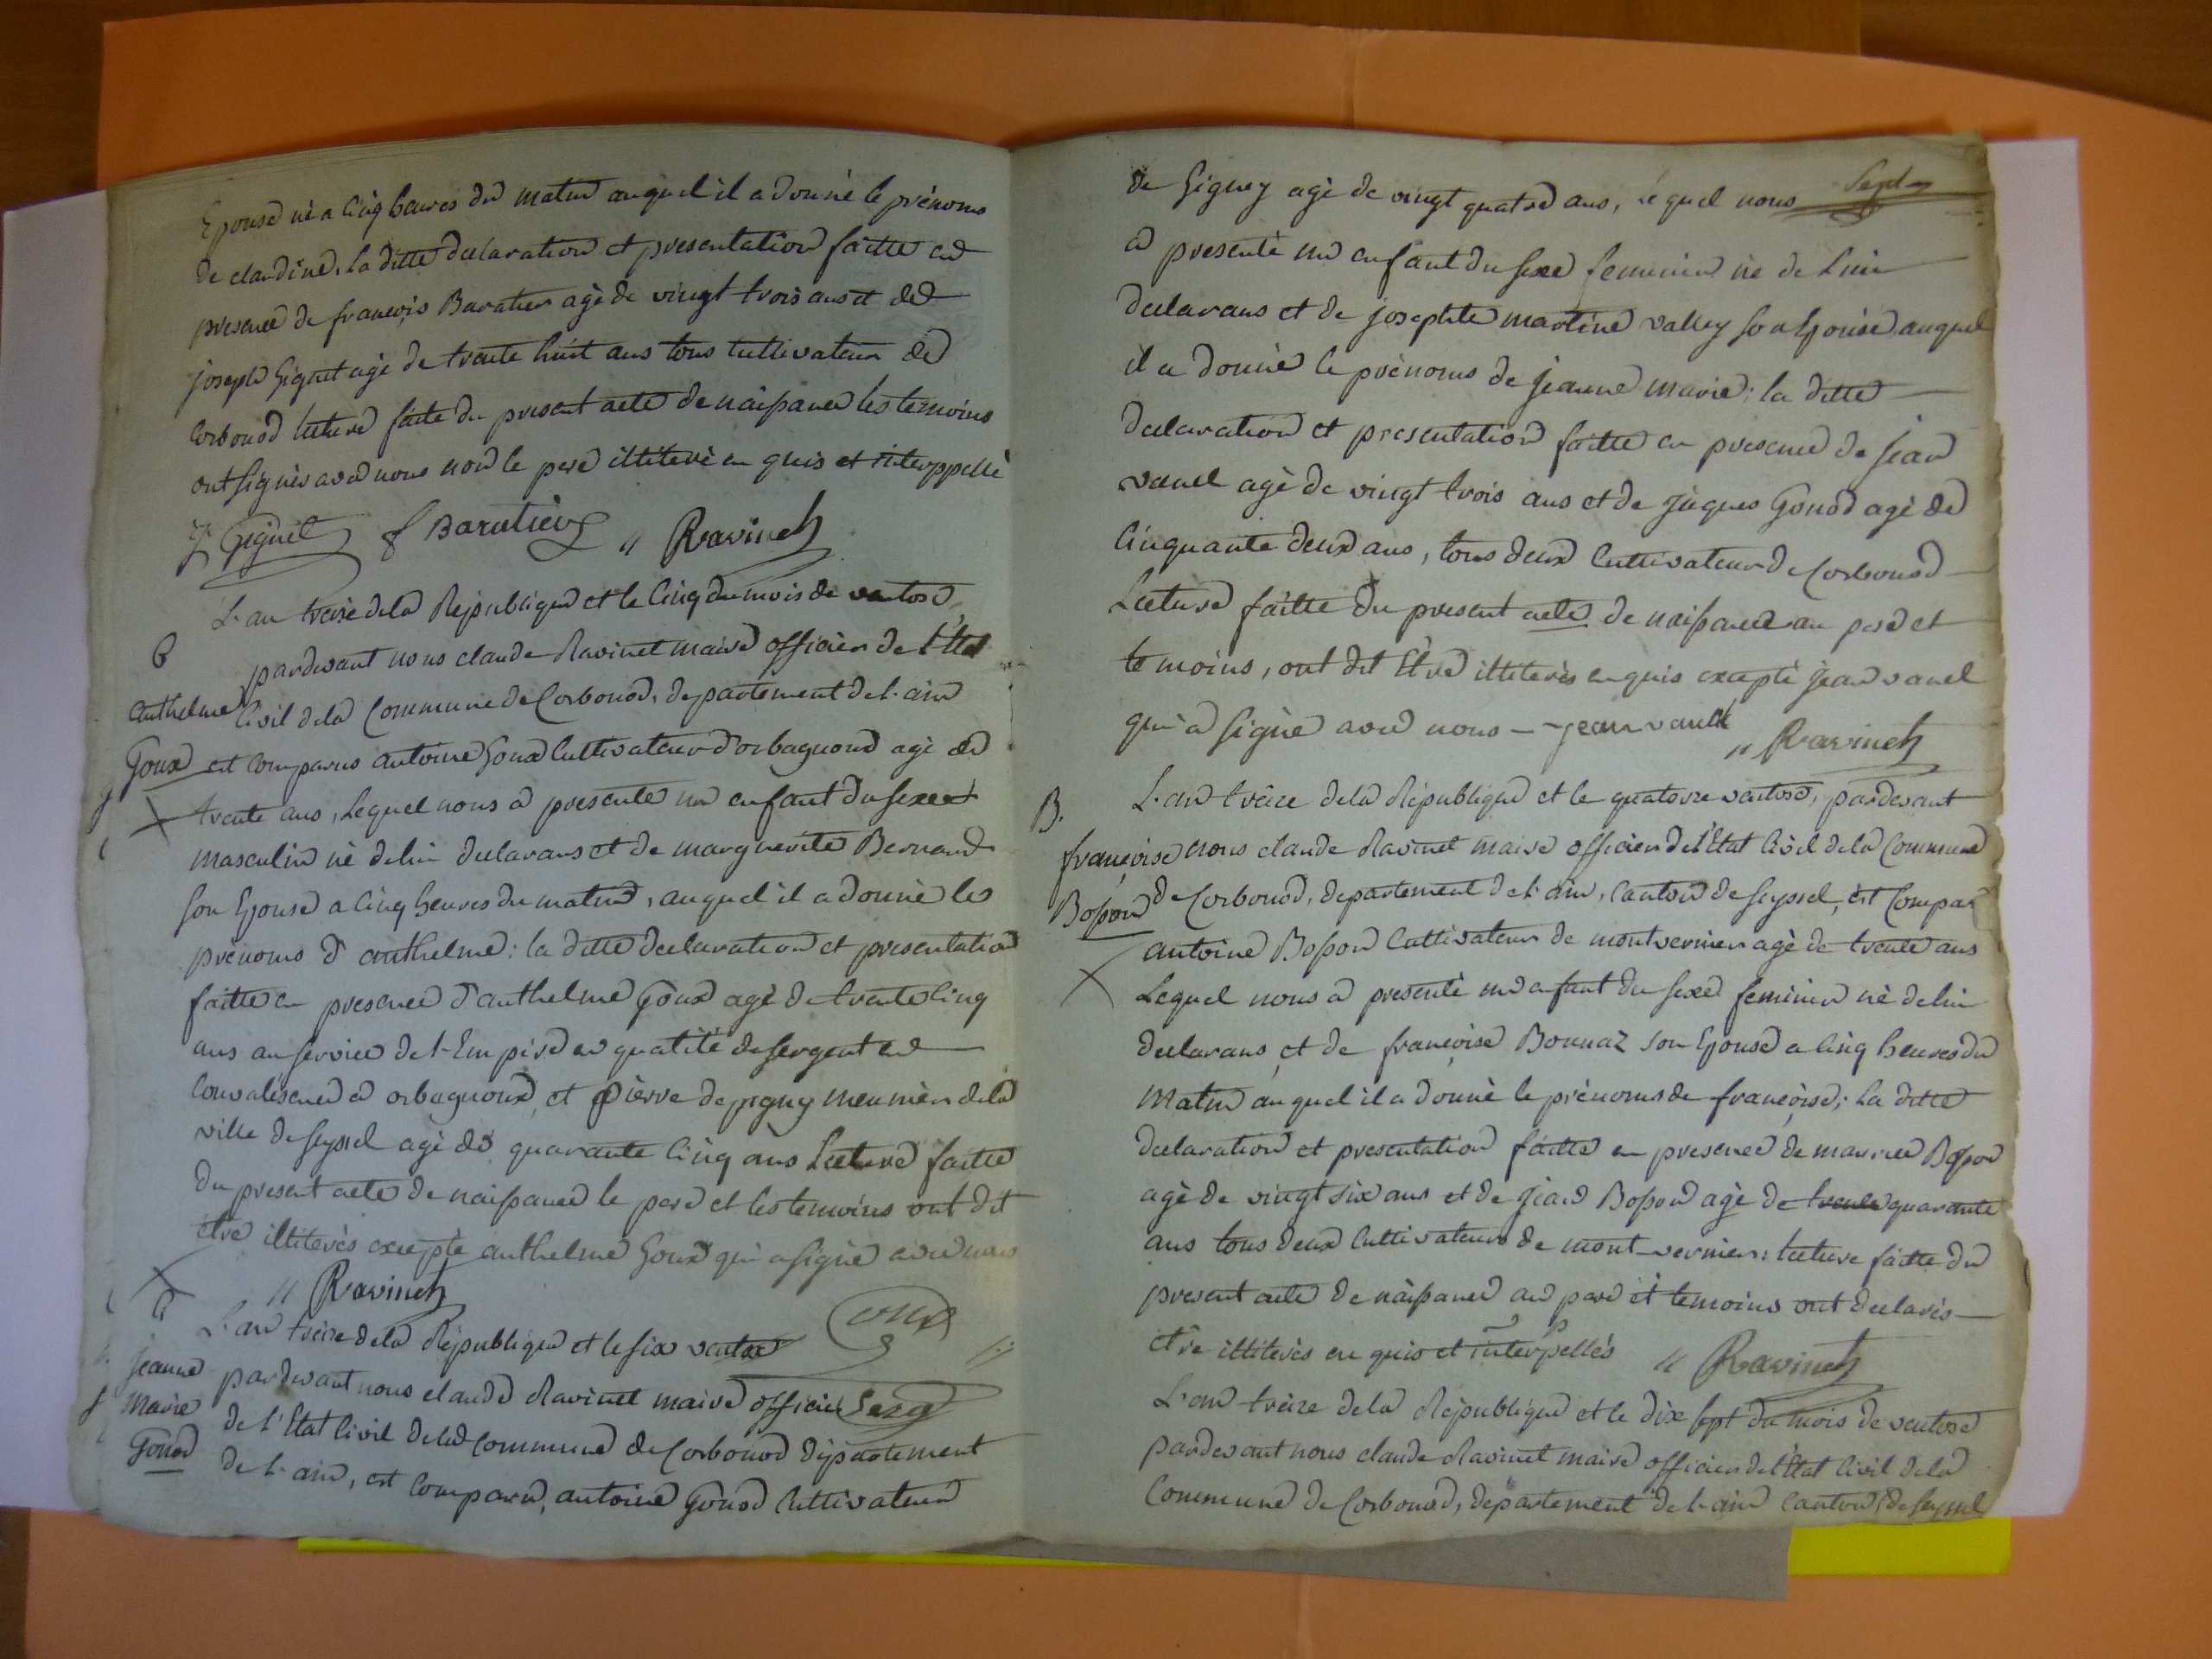 Epouse nè a Cinq heures du matin auquel il a donnè le prènoms
de claudine. la ditte declaration et presentation faitte en
presence de francois Baratier agè de vingt trois ans et de
joseph Gignet agè de trente huit ans tous Cultivateur de
Corbonod lecture faite du present acte de naissance les temoins
ont signès avec nous non le pere illiterè en quis et interppellè
j. Gignet f Baratier " Ravinet
L'an treize dela Republique et le Cinq du mois de ventose
B pardevant nous claude Ravinet maire officier de l'Etat
Anthelme Civil dela Commune de Corbonod, departement de l'ain
Goux est comparus antoine Goux Cultivateur d'orbagnoux agè de
trente ans, Lequel nous a presente un enfant du sexe
masculin nè de lui declarans et de marguerite Bernard
son Epouse a Cinq heures du matin, auquel il a donnè les
prènoms d'anthelme: la ditte declaration et presentation
faitte en presence d'anthelme Goux agè de trente Cinq
ans au service de l'Empire en qualitè de sergent en
Convalescence a orbagnoux, et pierre depigny meunièr dela
ville de seyssel agè de quarante Cinq ans Lecture faitte
du present acte de naissance le pere et les temoins ont dit
etre illiterès excepte anthelme Goux qui a signè avec nous
" Ravinet
L'an treize dela Republique et le six ventose
Jeanne pardevant nous claude Ravinet maire officier
Marie de l'Etat Civil dela Commune de Corbonod dèpartement
Gonod de l'ain, est Comparu, antoine Gonod Cultivateur
de Gignez agè de vingt quatre ans, lequel nous Sept
a presentè un enfant du sexe feminin nè de Lui
declarans et de josephte martine valley son Epouse, auquel
il a donnè le prènoms de jeanne marie: la ditte
declaration et presentation faitte en presence de jean
vauel agè de vingt trois ans et de jàques Gonod agè de
Cinquante deux ans, tous deux Cultivateur de Corbonod
Lecture faitte du present acte de naissance au pere et
temoins, ont dit Etre illiterès en quis exceptè jean vauel
qui a signè avec nous - jean vauel
" Ravinet
B. L'an treize dela Rèpublique et le quatorze ventose, pardevant
françoise nous claude Ravinet maire officier de l'Etat Civil dela Commune
Bosson de Corbonod, departement de l'ain, Canton de seyssel, est Compar
antoine Bosson Cultivateur de montvernier agè de trente ans
Lequel nous a presentè un enfant du sexe feminin nè de lui
declarans, et de françoise Bonnaz son Epouse a Cinq heures du
matin auquel il a donnè le prènoms de françoise; La ditte
declaration et presentation faitte en presence de maurice Bosson
agè de vingt six ans et de jean Bosson agè de trente quarante
ans tous deux Cultivateurs de mont-vernier: lecture faitte du
present acte de naissance au pere et temoins ont declarès
etre illiterès en quis et interpellès " Ravinet
L'an treize dela Rèpublique et le dix sept du mois de ventose
pardevant nous claude Ravinet maire officier de l'Etat Civil dela
Commune de Corbonod, departement de l'ain Canton de seyssel